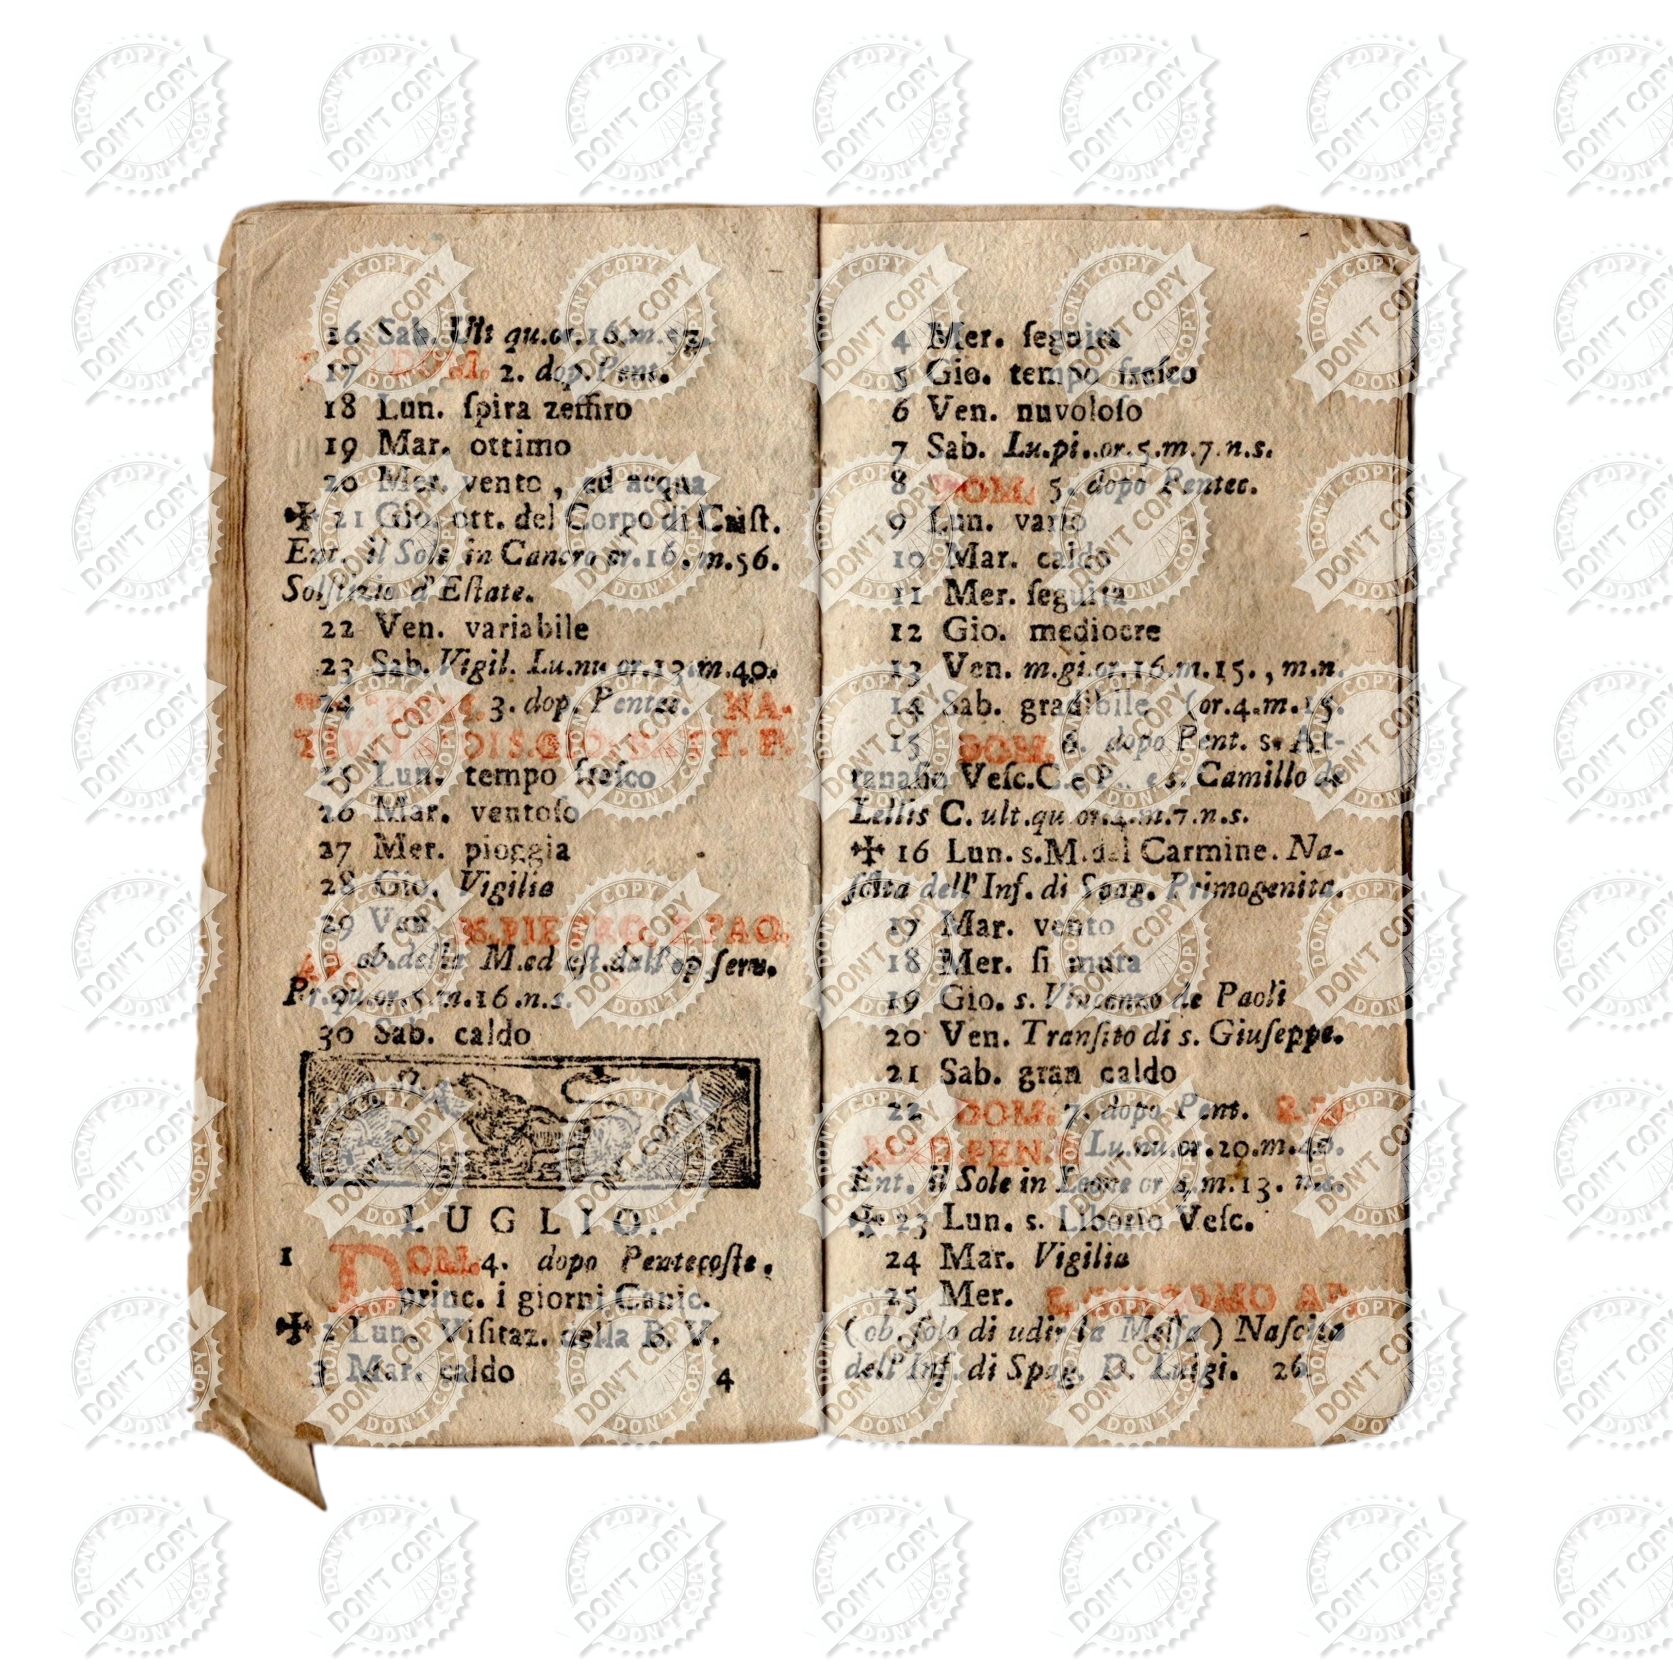 16 Sab. Ult qu.or.16.m.57.
17 DOM. 2. dop. Pent.
18 Lun. ſpira zeffiro
19 Mar. ottimo
20 Mer. vento, ed acqua
✠ 21 Gio. ott. del Corpo di Criſt.
Ent. il Sole in Cancro or.16.m.56.
Solſtizio d'Eſtate.
22 Ven. variabile
23 Sab. Vigil. Lu.nu or.13.m.40.
24 DOM. 3. dop. Pentec. NA-
DI S. GIO. BAT.
25 Lun. tempo freſco
26 Mar. ventoſo
27 Mer. pioggia
28 Gio. Vigilia
29 Ven. PIETRO, E PAO.
ob. della M. ed eſt. dall' op ſeru.
Pr.qu.or.5.m.16.n.s.
30 Sab. caldo
LUGLIO.
1 DOM. 4. dopo Pentecoſte.
princ. i giorni Canic.
✠ 2 Lun. Viſitaz. della B. V.
3 Mar. caldo 4
4 Mer. ſeguita
5 Gio. tempo freſco
6 Ven. nuvoloſo
7 Sab. Lu.pi..or.5.m.7.n.s.
8 DOM. 5. dopo Pentec.
9 Lun. vario
10 Mar. caldo
11 Mer. ſeguita
12 Gio. mediocre
13 Ven. m.gi.or.16.m.15., m.n.
14 Sab. gradibile (or.4.m.15.
15 DOM. 6. dopo Pent. s. At-
tanaſio Veſc.C.e P. e s. Camillo de
Lellis C. ult.qu or.4.m.7.n.s.
✠ 16 Lun. s.M.del Carmine. Na-
ſcita dell' Inf. di Spag. Primogenita.
17 Mar. vento
18 Mer. ſi muta
19 Gio. s. Vincenzo de Paoli
20 Ven. Tranſito di s. Giuſeppe.
21 Sab. gran caldo
22 DOM. 7. dopo Pent.
PEN. Lu.nu.or.20.m.40.
Ent. il Sole in Leone or 4.m.13. n.s.
✠ 23 Lun. s. Liborio Veſc.
24 Mar. Vigilia
25 Mer. S. GIACOMO AP.
(ob. ſolo di udir la Meſſa) Naſcita
dell' Inf. di Spag. D. Luigi. 26
DON'T COPY